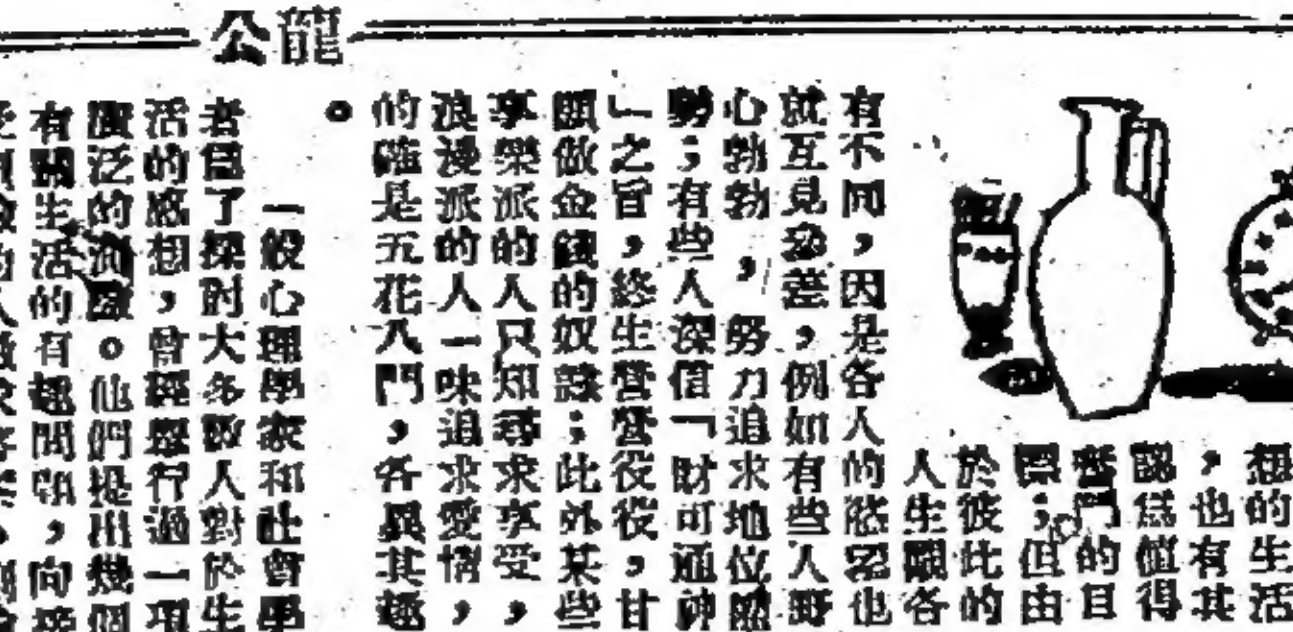 公龍
想的生活
，也有其
認爲值得
奮鬥的目
標；但由
於彼此的
人生觀各
有不同，因是各人的慾望也
就互見參差，例如有些人野
心勃勃，努力追求地位照
勢；有些人深信「財可通神
」之旨，終生營營役役，甘
願做金錢的奴隸；此外某些
享樂派的人只知尋求享受，
浪漫派的人一味追求愛情，
的確是五花八門，各異其趣
。
一般心理學家和社會學
者爲了探討大多數人對於生
活的感想，曾經舉行過一項
廣泛的測驗。他們提出幾個
有關生活的有趣問題，向接